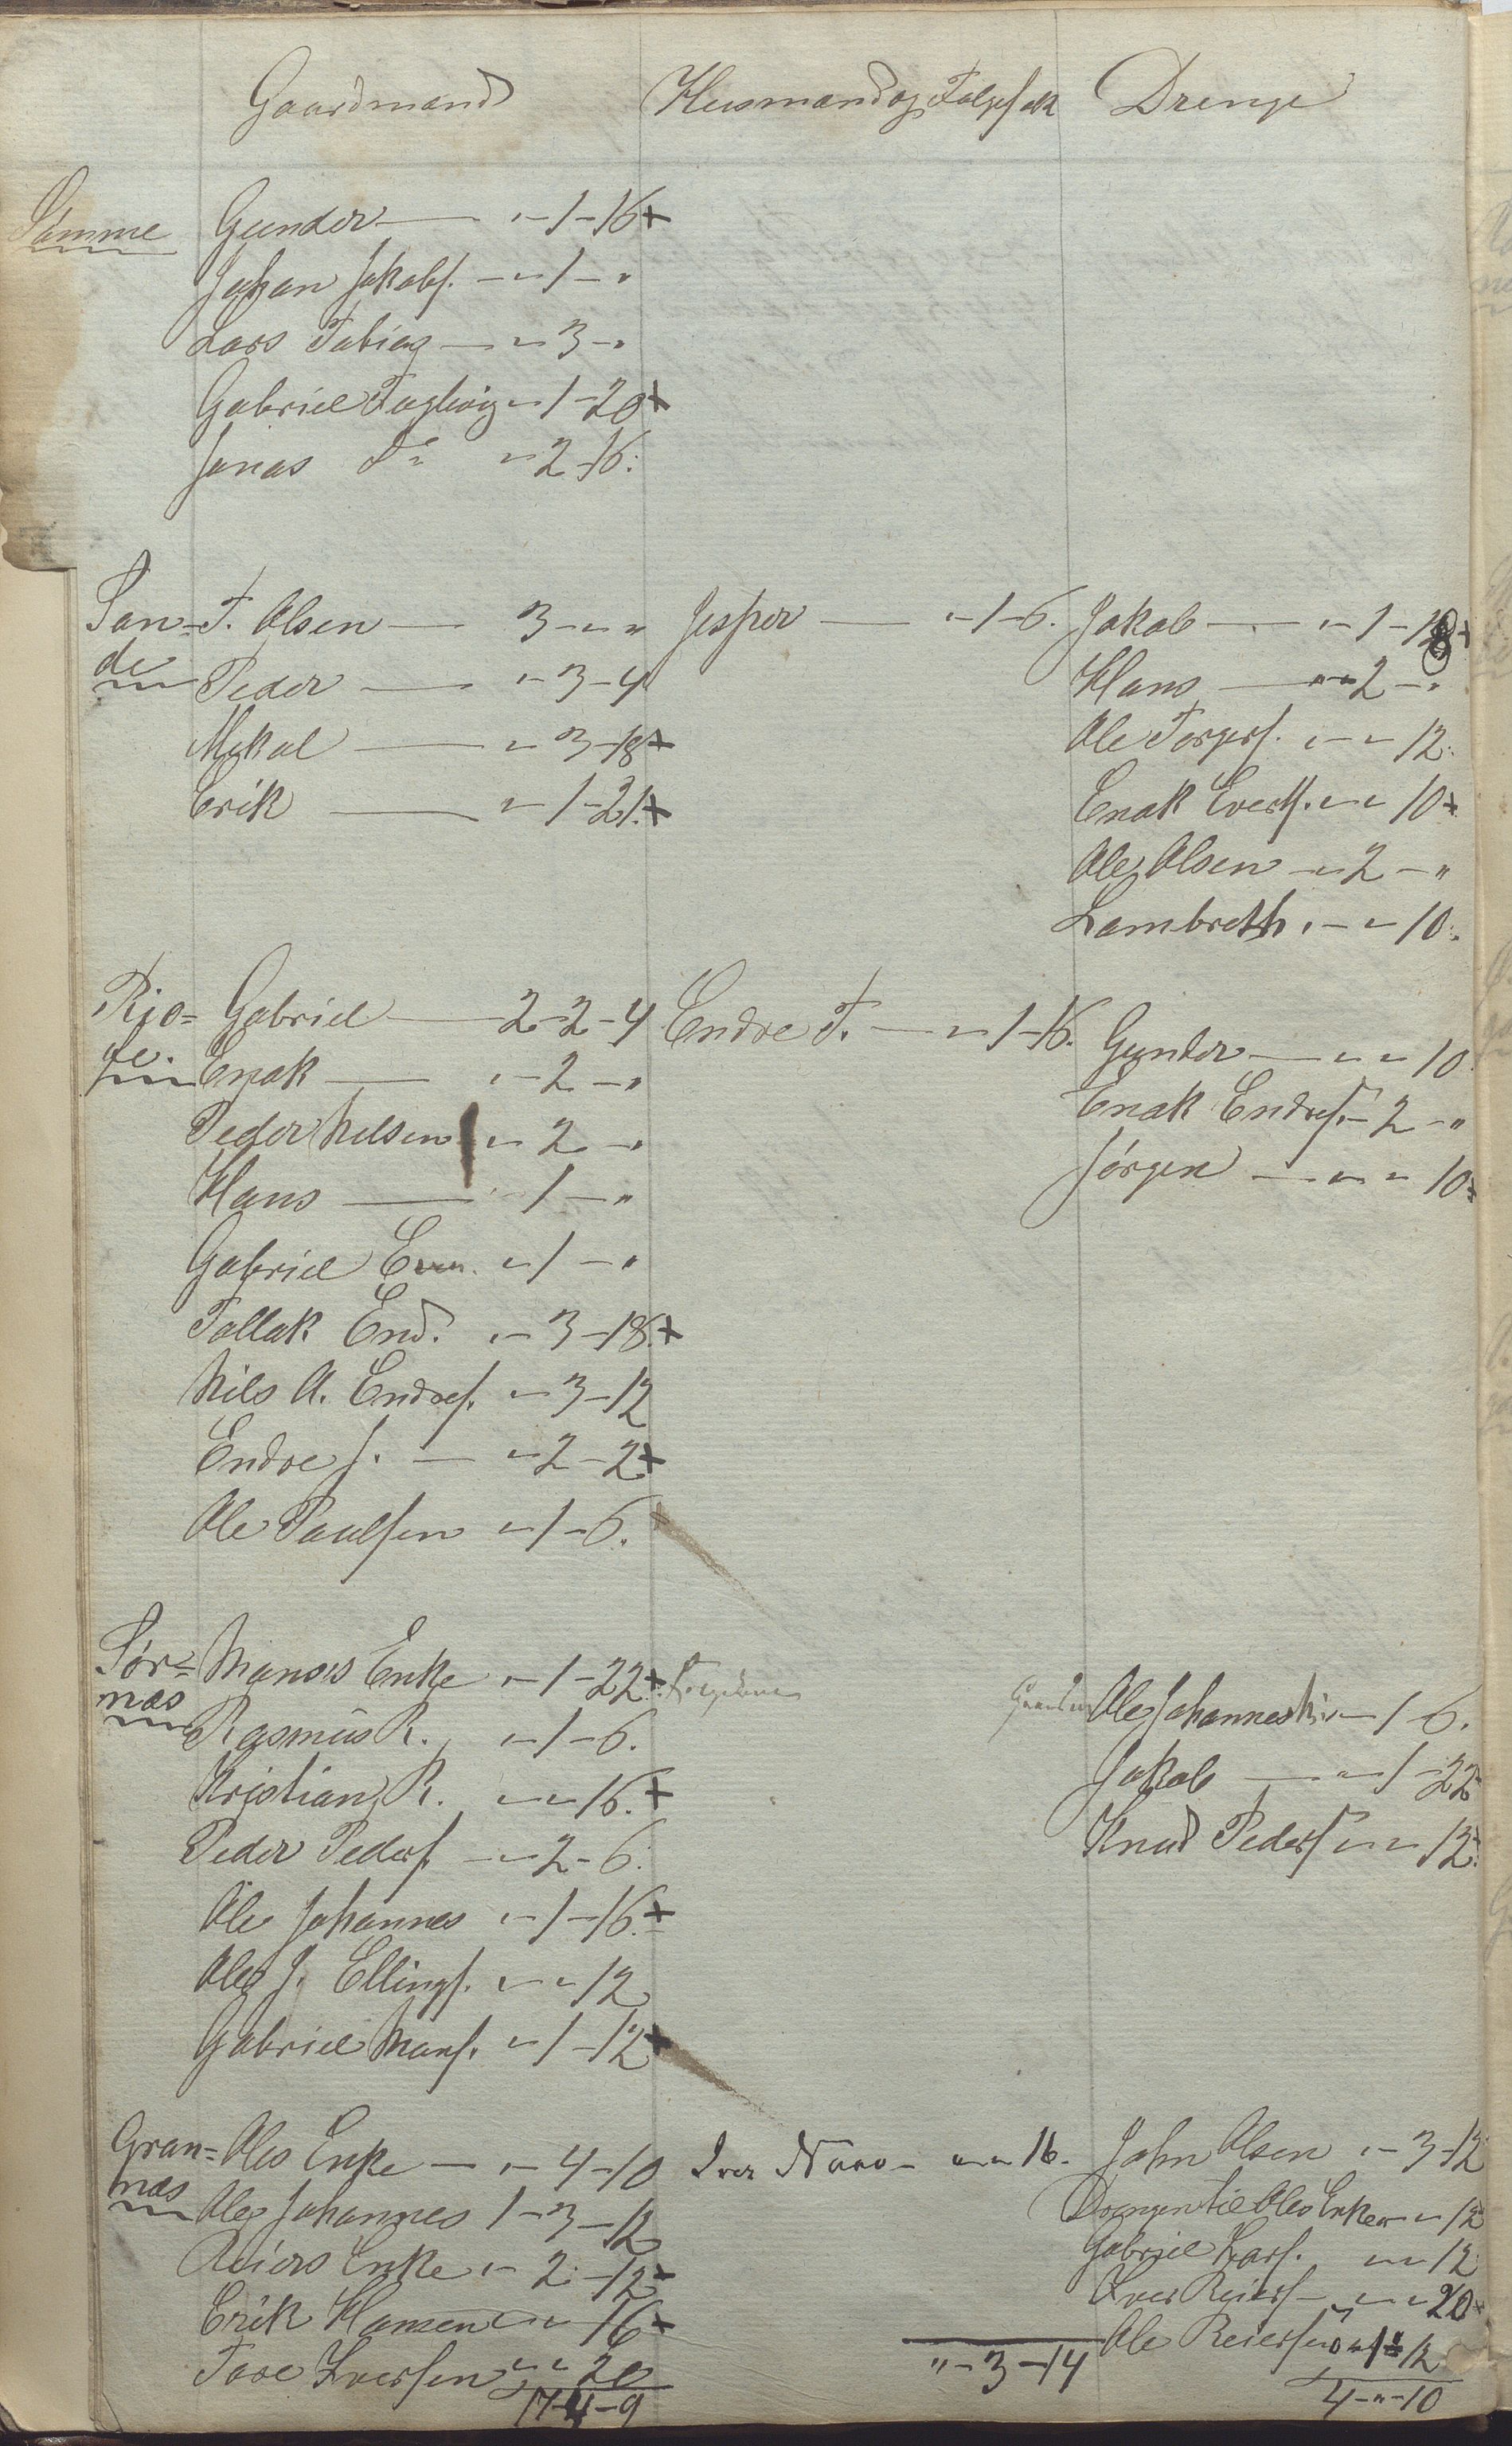 Gaardmænd Husmænd og Følgefolk Drenge
Sømme Gunder — „-1-16+
Johan Jakobs. — „-1-„
Lars Tobias — „-3-„
Gabriel Fuglvig „-1-20+
Jonas do „-2-16.
San= T. Olsen — 3-„-„ Jesper — „-1-6. Jakob — „-1-18+
de Peder — „-3-4 Hans — „-2-„
Mikal — „-3-18+ Ole Torgers. „-„-12.
Erik — „-1-21.+ Enok Everts. „-„-10+
Ole Olsen „-2-„
Lambreth „-„-10.
Rio= Gabriel — 2-2-4 Endre T. — „-1-16. Gunder — „-„-10
ge. Enok — „-2-„ Enok Endres. „-2-„
Peder Nelsen „-2-„ Jørgen — „-„-10+
Hans — „-1-„
Gabriel „-1-„
Tollak End. „-3-18.+
Nils A. Endres. „-3-12
Endre J. — „-2-2+
Ole Paulsen „-1-6.
Sør= Manses Enke „-1-22+ Ole Johannes „-1-6.
næs Rasmus R. „-1-6. Jakob — „-1-22
Kristian R. „-„-16.+ Knud Peders. „-„-12.
Peder Peders. „-2-6.
Ole Johannes „-1-16.+
Ole J. Ellings. „-„-12
Gabriel Mans. „-1-12+
Gran= Oles Enke — „-4-10 Iver „-„-16. John Olsen „-3-12
næs Ole Johannes 1-3-12 Drengen til Oles Enke „-„-12
Reiers Enke „-2-12+ Gabriel Lars. „-„-12
Erik Hansen „-„-16+ Iver Reiers. „-„-20+
Tore Iversen „-„-20 Ole Reiersen „-1-12
17-4-9 „-3-14 4-„-10